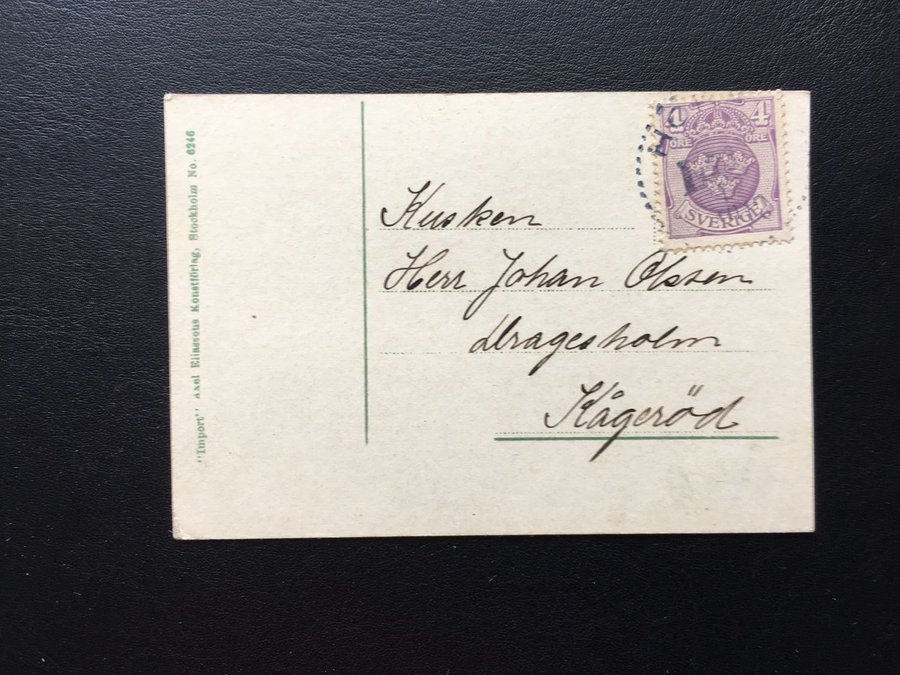 "Import" Axel Eliassons Konstförlag, Stockholm No. 6246
4 4
ÖRE ÖRE
SVERIGE
Kusken
Herr Johan Olssen
Dragesholm
Kågeröd